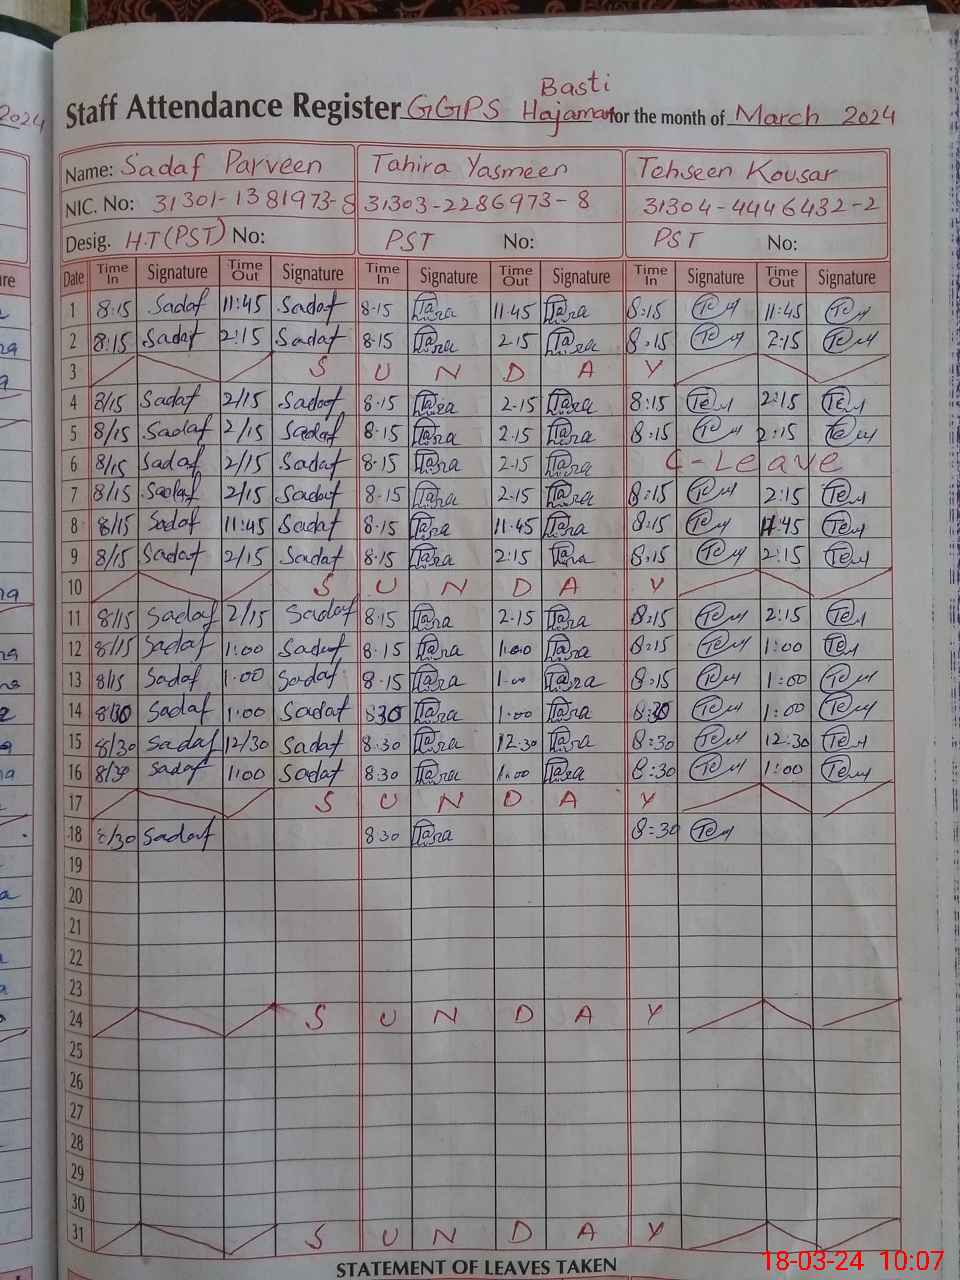 Basti
Staff Attendance Register GGPS Hajamar for the month of March 2024
Name: Sadaf Parveen Tahira Yasmeen Tehseen Kousar
NIC. No: 31301-1381973-8 31303-2286973-8 31304-4446432-2
Desig. H.T (PST) No: PST No: PST No:
Date Time In Signature Time Out Signature Time In Signature Time Out Signature Time In Signature Time Out Signature
1 8:15 Sadaf 11:45 Sadaf 8-15 Tara 11.45 Tara 8:15 Tem 11:45 Tem
2 8:15 Sadaf 2:15 Sadaf 8-15 Tara 2.15 Tara 8:15 Tem 2:15 Tem
3 S U N D A Y
4 8/15 Sadaf 2/15 Sadaf 8-15 Tara 2.15 Tara 8:15 Tem 2:15 Tem
5 8/15 Sadaf 2/15 Sadaf 8-15 Tara 2.15 Tara 8:15 Tem 2:15 Tem
6 8/15 Sadaf 2/15 Sadaf 8-15 Tara 2.15 Tara C-Leave
7 8/15 Sadaf 2/15 Sadaf 8-15 Tara 2.15 Tara 8:15 Tem 2:15 Tem
8 8/15 Sadaf 11:45 Sadaf 8-15 Tara 11.45 Tara 8:15 Tem 11:45 Tem
9 8/15 Sadaf 2/15 Sadaf 8-15 Tara 2:15 Tara 8:15 Tem 2:15 Tem
10 S U N D A Y
11 8/15 Sadaf 2/15 Sadaf 8-15 Tara 2.15 Tara 8:15 Tem 2:15 Tem
12 8/15 Sadaf 1:00 Sadaf 8-15 Tara 1.00 Tara 8:15 Tem 1:00 Tem
13 8/15 Sadaf 1.00 Sadaf 8-15 Tara 1.00 Tara 8:15 Tem 1:00 Tem
14 8:30 Sadaf 1:00 Sadaf 8:30 Tara 1.00 Tara 8:30 Tem 1:00 Tem
15 8/30 Sadaf 12/30 Sadaf 8.30 Tara 12.30 Tara 8:30 Tem 12:30 Tem
16 8/30 Sadaf 1:00 Sadaf 8.30 Tara 1.00 Tara 8:30 Tem 1:00 Tem
17 S U N D A Y
18 8/30 Sadaf 8.30 Tara 8:30 Tem
19
20
21
22
23
24 S U N D A Y
25
26
27
28
29
30
31 S U N D A Y
STATEMENT OF LEAVES TAKEN
18-03-24 10:07